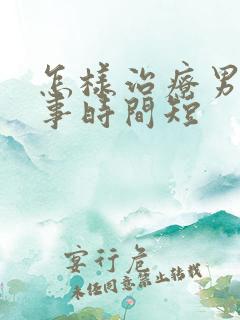 怎樣治療男
事時間短
宴行危
未經同意禁止轉載